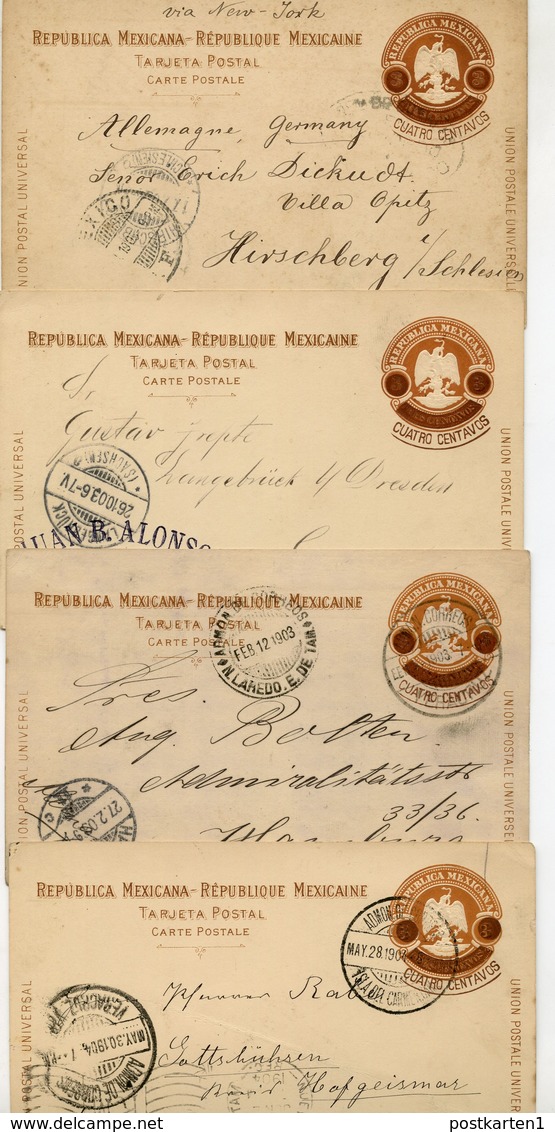 via New-York
REPÚBLICA MEXICANA-RÉPUBLIQUE MEXICAINE
TARJETA POSTAL
CARTE POSTALE
REPUBLICA MEXICANA
CUATRO CENTAVOS
UNION POSTAL UNIVERSAL
UNION POSTALE UNIVERSELLE
Allemagne, Germany
Señor Erich Dickudt
Villa Opitz
Hirschberg i/Schlesien
MEXICO
REPÚBLICA MEXICANA-RÉPUBLIQUE MEXICAINE
TARJETA POSTAL
CARTE POSTALE
REPUBLICA MEXICANA
CUATRO CENTAVOS
POSTAL UNIVERSAL
UNION POSTALE UNIVERSE
S.
Gustav
Langebrück b/ Dresden
(SACHSEN) 26.10.03.6-7V.
JUAN B. ALONSO
REPÚBLICA MEXICANA-RÉPUBLIQUE MEXICAINE
TARJETA POSTAL
CARTE POSTALE
REPUBLICA MEXICANA
CUATRO CENTAVOS
ADMON DE CORREOS
FEB 12 1903
N. LAREDO. E. DE TAM.
UNION POSTAL UNIVERSAL
UNION POSTALE UNIVERSEL
Sres.
Aug. Bolten
Admiralitätsstr
33/36.
Hamburg
27.2.03
REPÚBLICA MEXICANA-RÉPUBLIQUE MEXICAINE
TARJETA POSTAL
CARTE POSTALE
REPUBLICA MEXICANA
CUATRO CENTAVOS
MAY.28.190
ISLA DEL CARMEN
UNIVERSAL
UNION POSTALE UNIVERS
VERACRUZ
MAY.30.1904
ADMON. DE CORREOS
Pfarrer
Gottsbühren
Hofgeismar
postkarten1